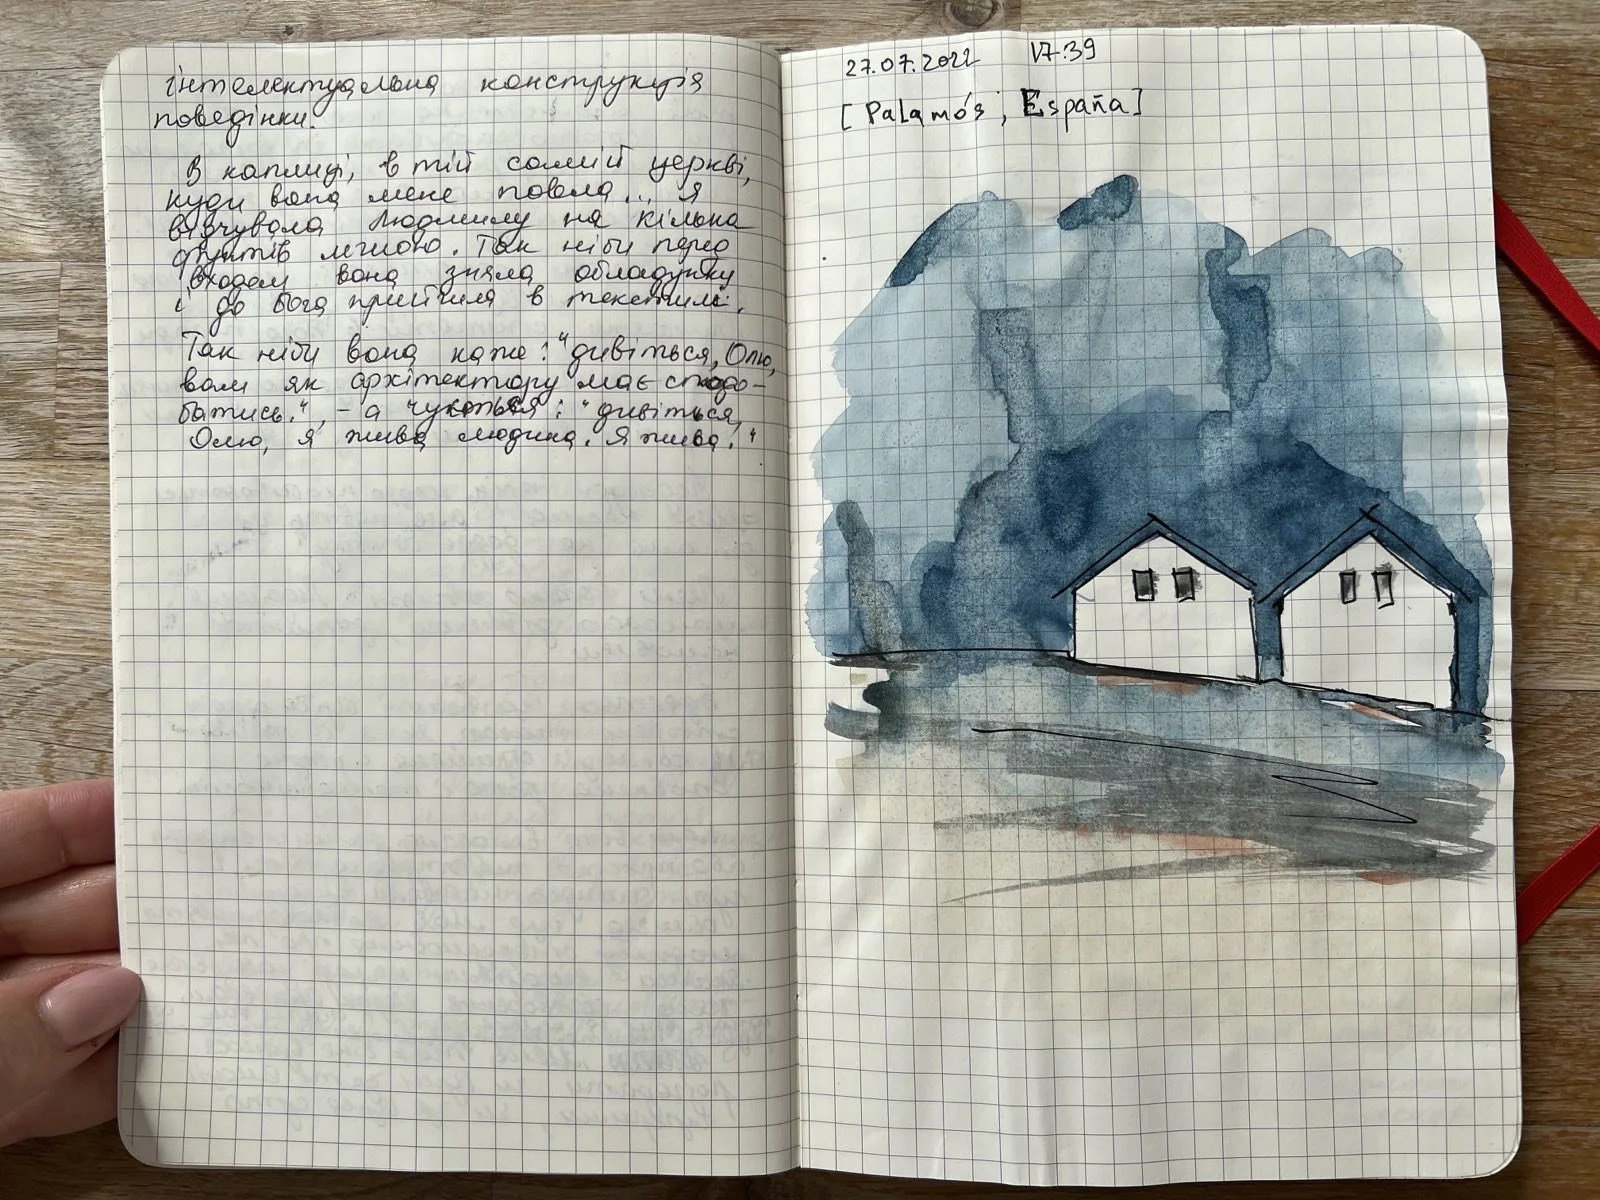 інтелектуальна конструкція
поведінки.
В каплиці, в тій самій церкві,
куди вона мене повела... я
відчувала Людмилу на кілька
футів легшою. Так ніби перед
входом вона зняла обладунку
і до Бога прийшла в текстилі.
Так ніби вона каже: "дивіться, Олю,
вам як архітектору має сподо-
батись.", - а чується: "дивіться,
Олю, я жива людина. Я жива."
27.07.2022 17:39
[Palamós, España]